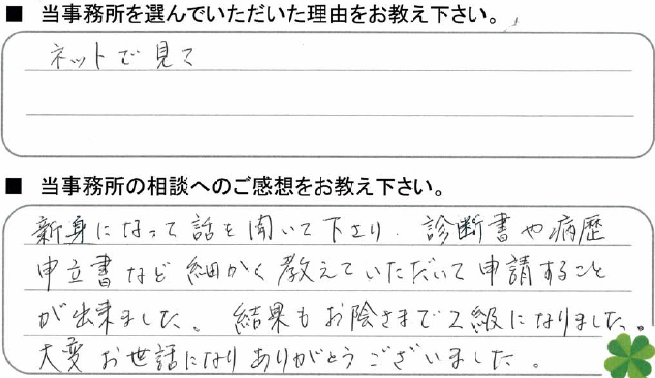 ■ 当事務所を選んでいただいた理由をお教え下さい。
ネットで見て
■ 当事務所の相談へのご感想をお教え下さい。
新身になって話を聞いて下さり、診断書や病歴
申立書など細かく教えていただいて申請すること
が出来ました。結果もお陰さまで2級になりました。
大変お世話になりありがとうございました。